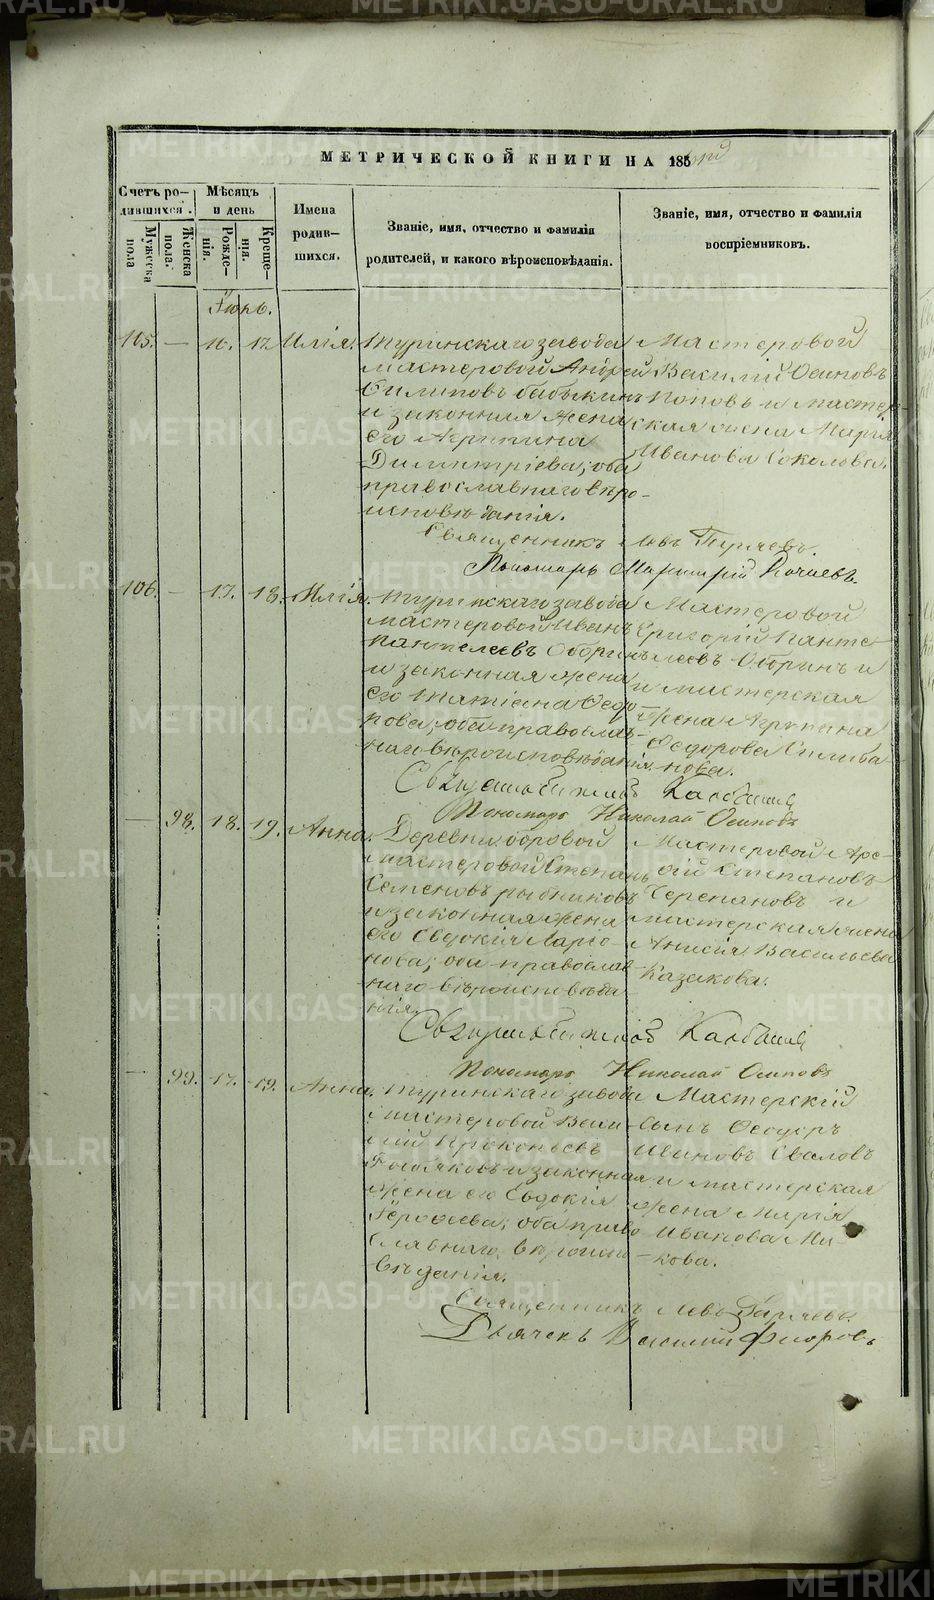 METRIKI.GASO-URAL.RU
МЕТРИЧЕСКОЙ КНИГИ НА 185 год
Счетъ ро-
дившихся.
Мужеска пола
Женска пола.
Мѣсяцъ
и день
Рожде-
нія.
Креще-
нія.
Имена
родив-
шихся.
Званіе, имя, отчество и фамилія
родителей, и какого вѣроисповѣданія.
Званіе, имя, отчество и фамилія
воспріемниковъ.
105. — 16. 17. Илія.
Туринскаго завода
мастеровой Андрей
Филиповъ Бабыкинъ
и законная жена
его Агрипина
Димитріева; оба
православнаго вѣро-
исповѣданія.
Мастеровой
Василій Осиповъ
Поповъ и мастер-
ская жена Марія
Иванова Соколова.
Священникъ Левъ
Пономарь
106. — 17. 18. Илія.
Туринскаго завода
мастеровой Иванъ
Пантелеевъ Обринъ
и законная жена
его Татіана Ѳедо-
рова; оба православ-
наго вѣроисповѣданія.
Мастеровой
Григорій Панте-
леевъ Обринъ и
и мастерская
жена Агрипина
Ѳедорова Силива-
нова.
Пономарь Николай Осиповъ
— 98. 18. 19. Анна.
Деревни
мастеровой Степанъ
Семеновъ Рыбниковъ
и законная жена
его Евдокія Ларіо-
нова; оба православ-
наго вѣроисповѣда-
нія.
Мастеровой Арсе-
ній Степановъ
Черепановъ и
мастерская жена
Анисія Васильева
Казакова.
Пономарь Николай Осиповъ
— 99. 17. 19. Анна.
Туринскаго завода
мастеровой Васи-
лій Прокопьевъ
и законная
жена его Евдокія
Герофеева; оба право-
славнаго вѣроиспо-
вѣданія.
Мастерскій
сынъ Ѳеодоръ
Ивановъ
и мастерская
жена Марія
Иванова
-кова.
Священникъ Левъ
Дьячекъ Василій
METRIKI.GASO-URAL.RU